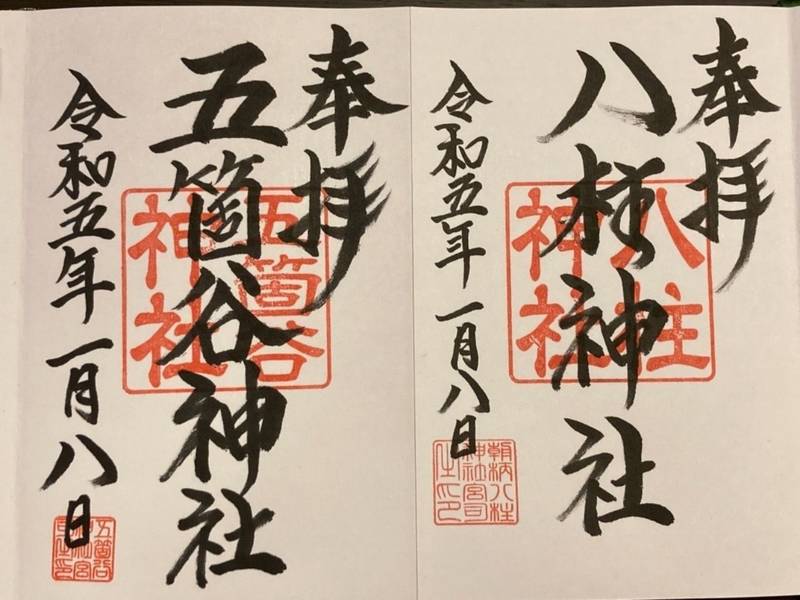 奉拝
八柱神社
八柱
神社
令和五年一月八日
朝柄八柱
神社宮司
之印
奉拝
五箇谷神社
五箇谷
神社
令和五年一月八日
五箇谷
神社宮
司之印